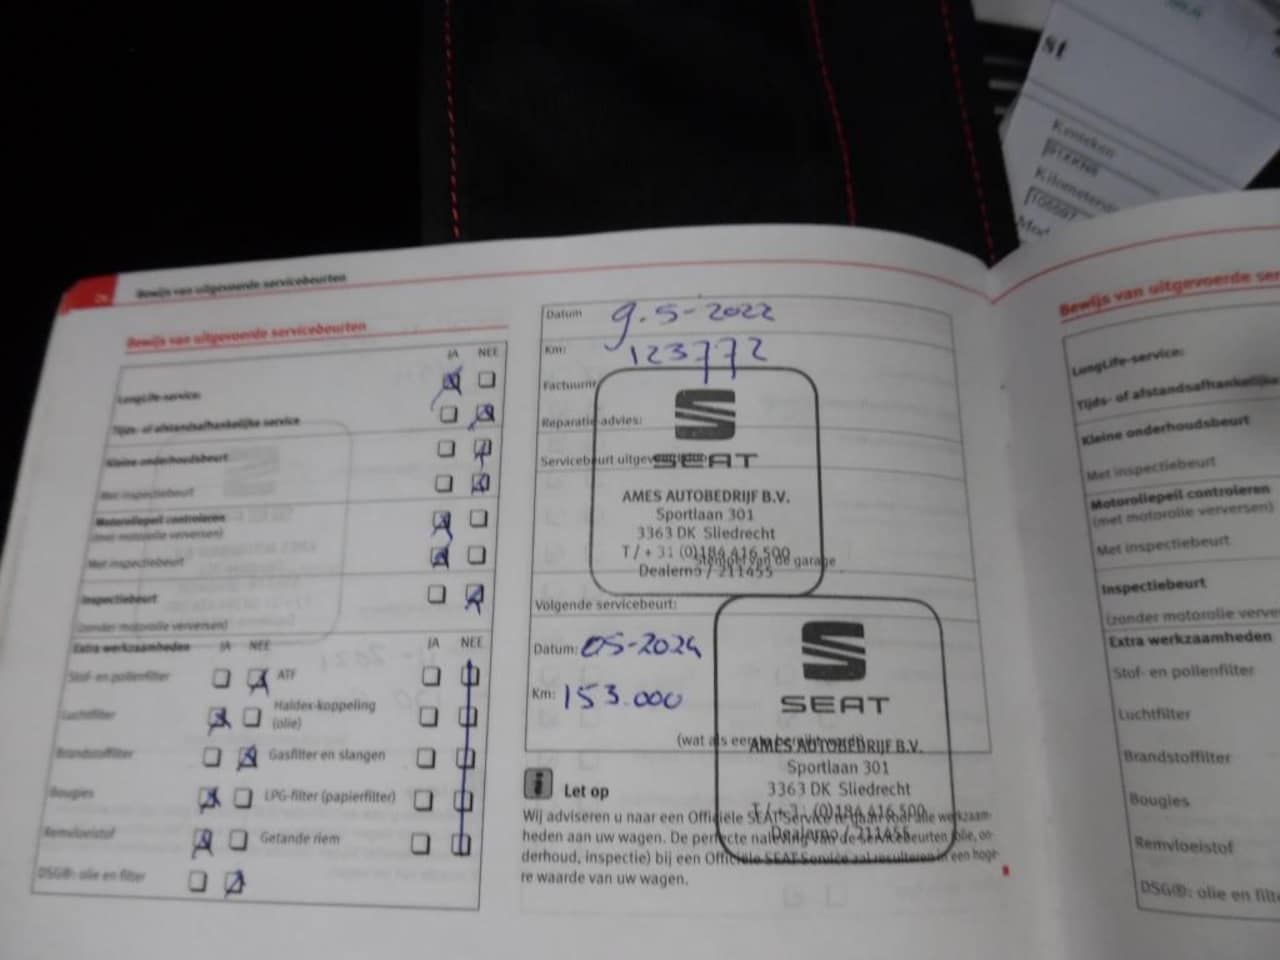 Bewijs van uitgevoerde servicebeurten
Bewijs van uitgevoerde servicebeurten
JA NEE
LongLife-service:
Tijds- of afstandsafhankelijke service
Kleine onderhoudsbeurt
Met inspectiebeurt
Motoroliepeil controleren
(met motorolie verversen)
Met inspectiebeurt
Inspectiebeurt
(zonder motorolie verversen)
Extra werkzaamheden JA NEE JA NEE
Stof- en pollenfilter ATF
Luchtfilter Haldex-koppeling
(olie)
Brandstoffilter Gasfilter en slangen
Bougies LPG-filter (papierfilter)
Remvloeistof Getande riem
DSG®: olie en filter
Datum 9-5-2022
Km: 123772
Factuurnr
Reparatie-advies:
Servicebeurt uitgevoerd
SEAT
AMES AUTOBEDRIJF B.V.
Sportlaan 301
3363 DK Sliedrecht
T / + 31 (0)184 416 500
Stempel van de garage
Dealerno / 211455
Volgende servicebeurt:
Datum: 05-2024
Km: 153.000
SEAT
(wat als eerste
AMES AUTOBEDRIJF B.V.
Sportlaan 301
3363 DK Sliedrecht
T / + 31 (0)184 416 500
Dealerno / 211455
i Let op
Wij adviseren u naar een Officiële SEAT Service te gaan voor alle werkzaam-
heden aan uw wagen. De perfecte naleving van de servicebeurten (olie, on-
derhoud, inspectie) bij een Officiële SEAT Service zal resulteren in een hoge-
re waarde van uw wagen.
Bewijs van uitgevoerde ser
LongLife-service:
Tijds- of afstandsafhankelijke
Kleine onderhoudsbeurt
Met inspectiebeurt
Motoroliepeil controleren
(met motorolie verversen)
Met inspectiebeurt
Inspectiebeurt
(zonder motorolie verve
Extra werkzaamheden
Stof- en pollenfilter
Luchtfilter
Brandstoffilter
Bougies
Remvloeistof
DSG®: olie en filte
st
Kenteken